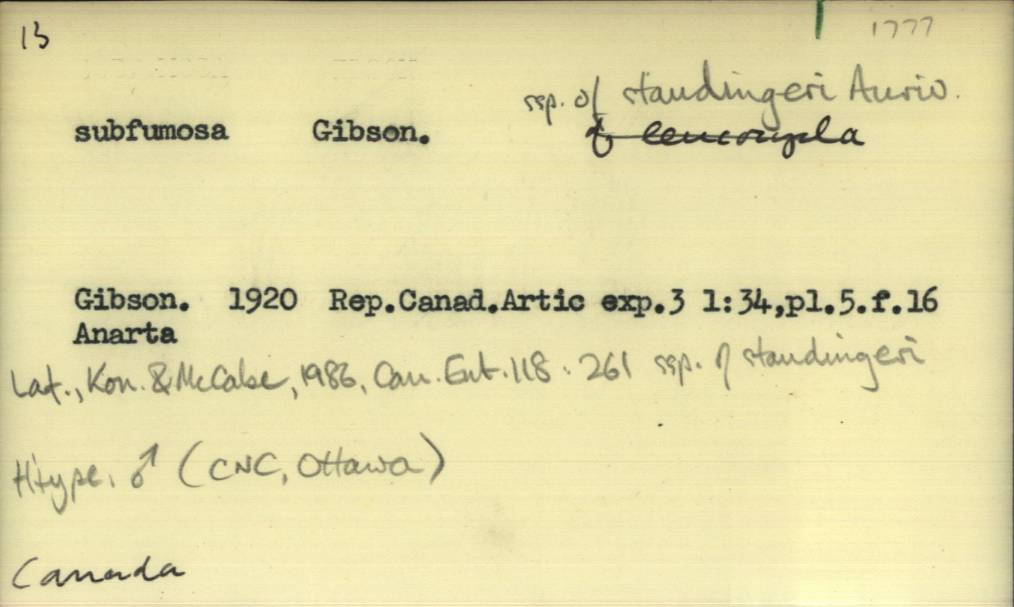 13
1777
ssp. of staudingeri Auriv.
subfumosa Gibson.
Gibson. 1920 Rep.Canad.Artic exp.3 1:34,pl.5.f.16
Anarta
Laf., Kon. & McCabe, 1986, Can. Ent. 118: 261 ssp. of staudingeri
Htype, ♂ (CNC, Ottawa)
Canada